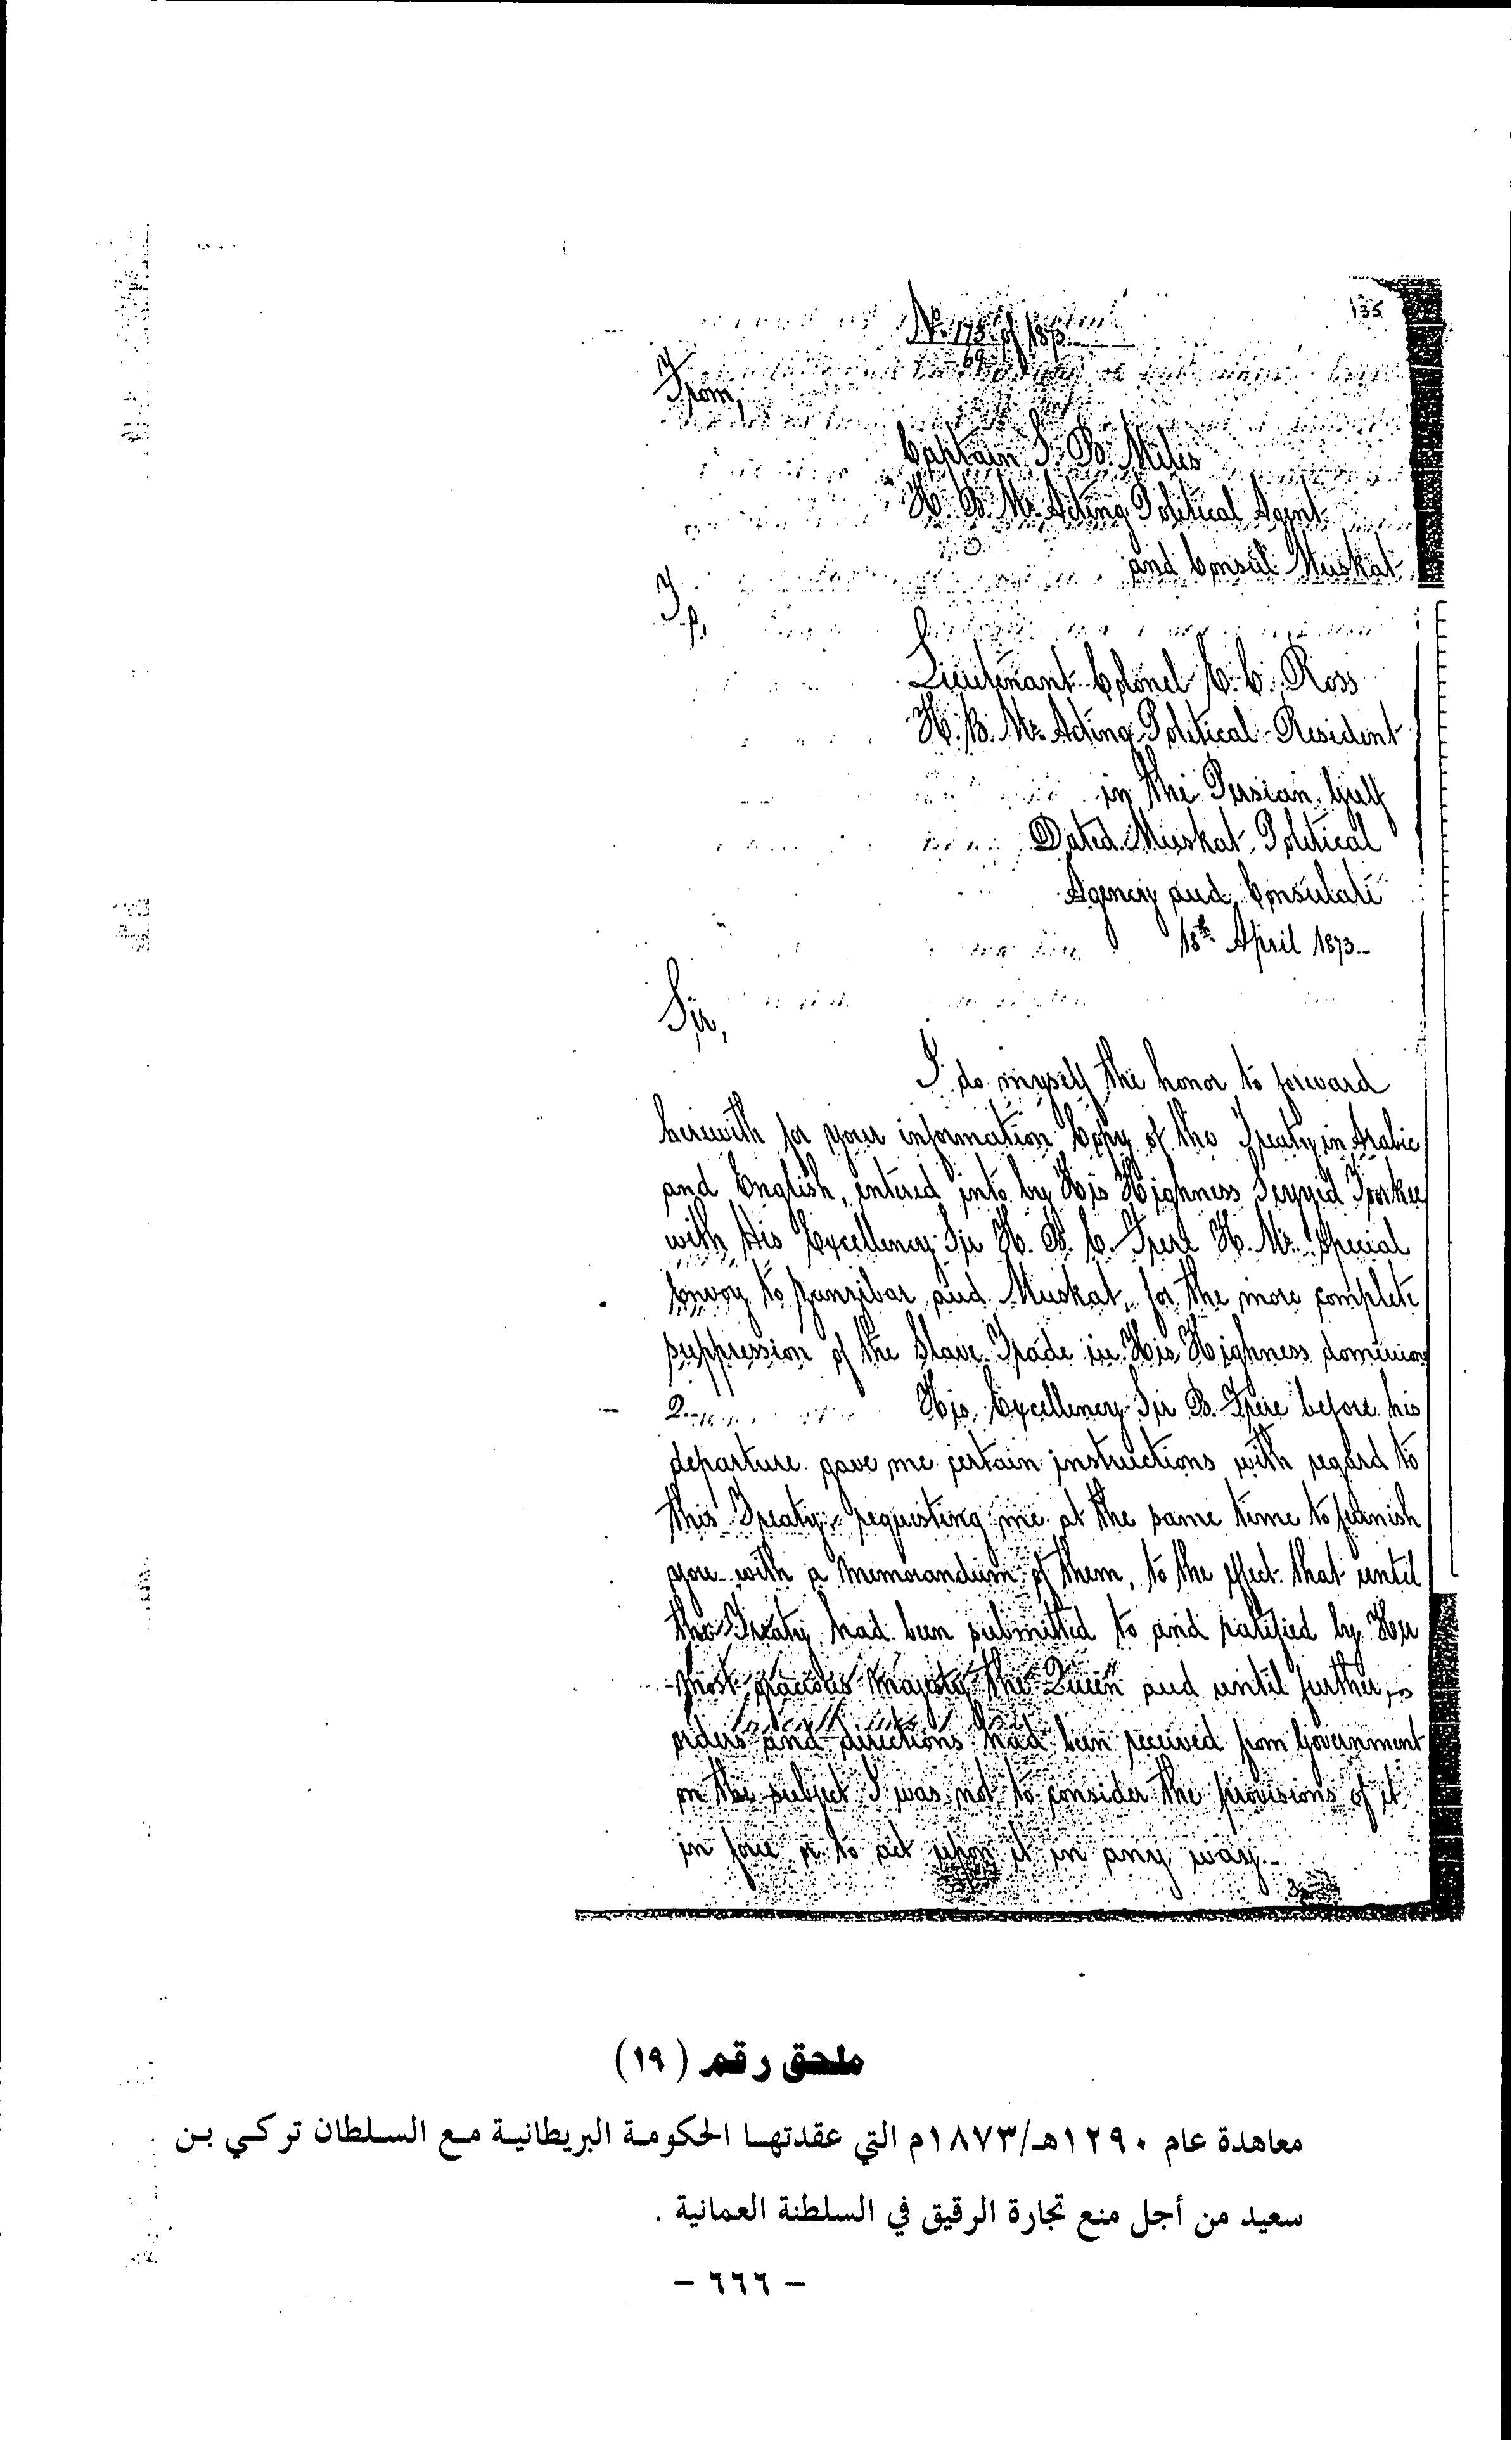 135
No. 175 of 1873.
69
From,
Captain S. B. Miles
H. B. Ms. Acting Political Agent
and Consul Muskat
To,
Lieutenant Colonel E. C. Ross
H. B. Ms. Acting Political Resident
in the Persian Gulf
Dated Muskat Political
Agency and Consulate
18th April 1873.-
Sir,
I do myself the honor to forward
herewith for your information Copy of the Treaty in Arabic
and English, entered into by His Highness Seyyid Toorkee
with His Excellency Sir H. B. E. Frere H. Ms. Special
Envoy to Zanzibar and Muskat, for the more complete
suppression of the Slave Trade in His Highness dominions
2. His Excellency Sir B. Frere before his
departure gave me certain instructions with regard to
this Treaty, requesting me at the same time to furnish
you with a memorandum of them, to the effect that until
the Treaty had been submitted to and ratified by Her
most gracious Majesty the Queen and until further
orders and directions had been received from Government
on the subject I was not to consider the provisions of it
in force or to act upon it in any way.-
3
ملحق رقم (١٩)
معاهدة عام ١٢٩٠هـ/١٨٧٣م التي عقدتها الحكومة البريطانية مع السلطان تركي بن
سعيد من أجل منع تجارة الرقيق في السلطنة العمانية .
- ٦٦٦ -